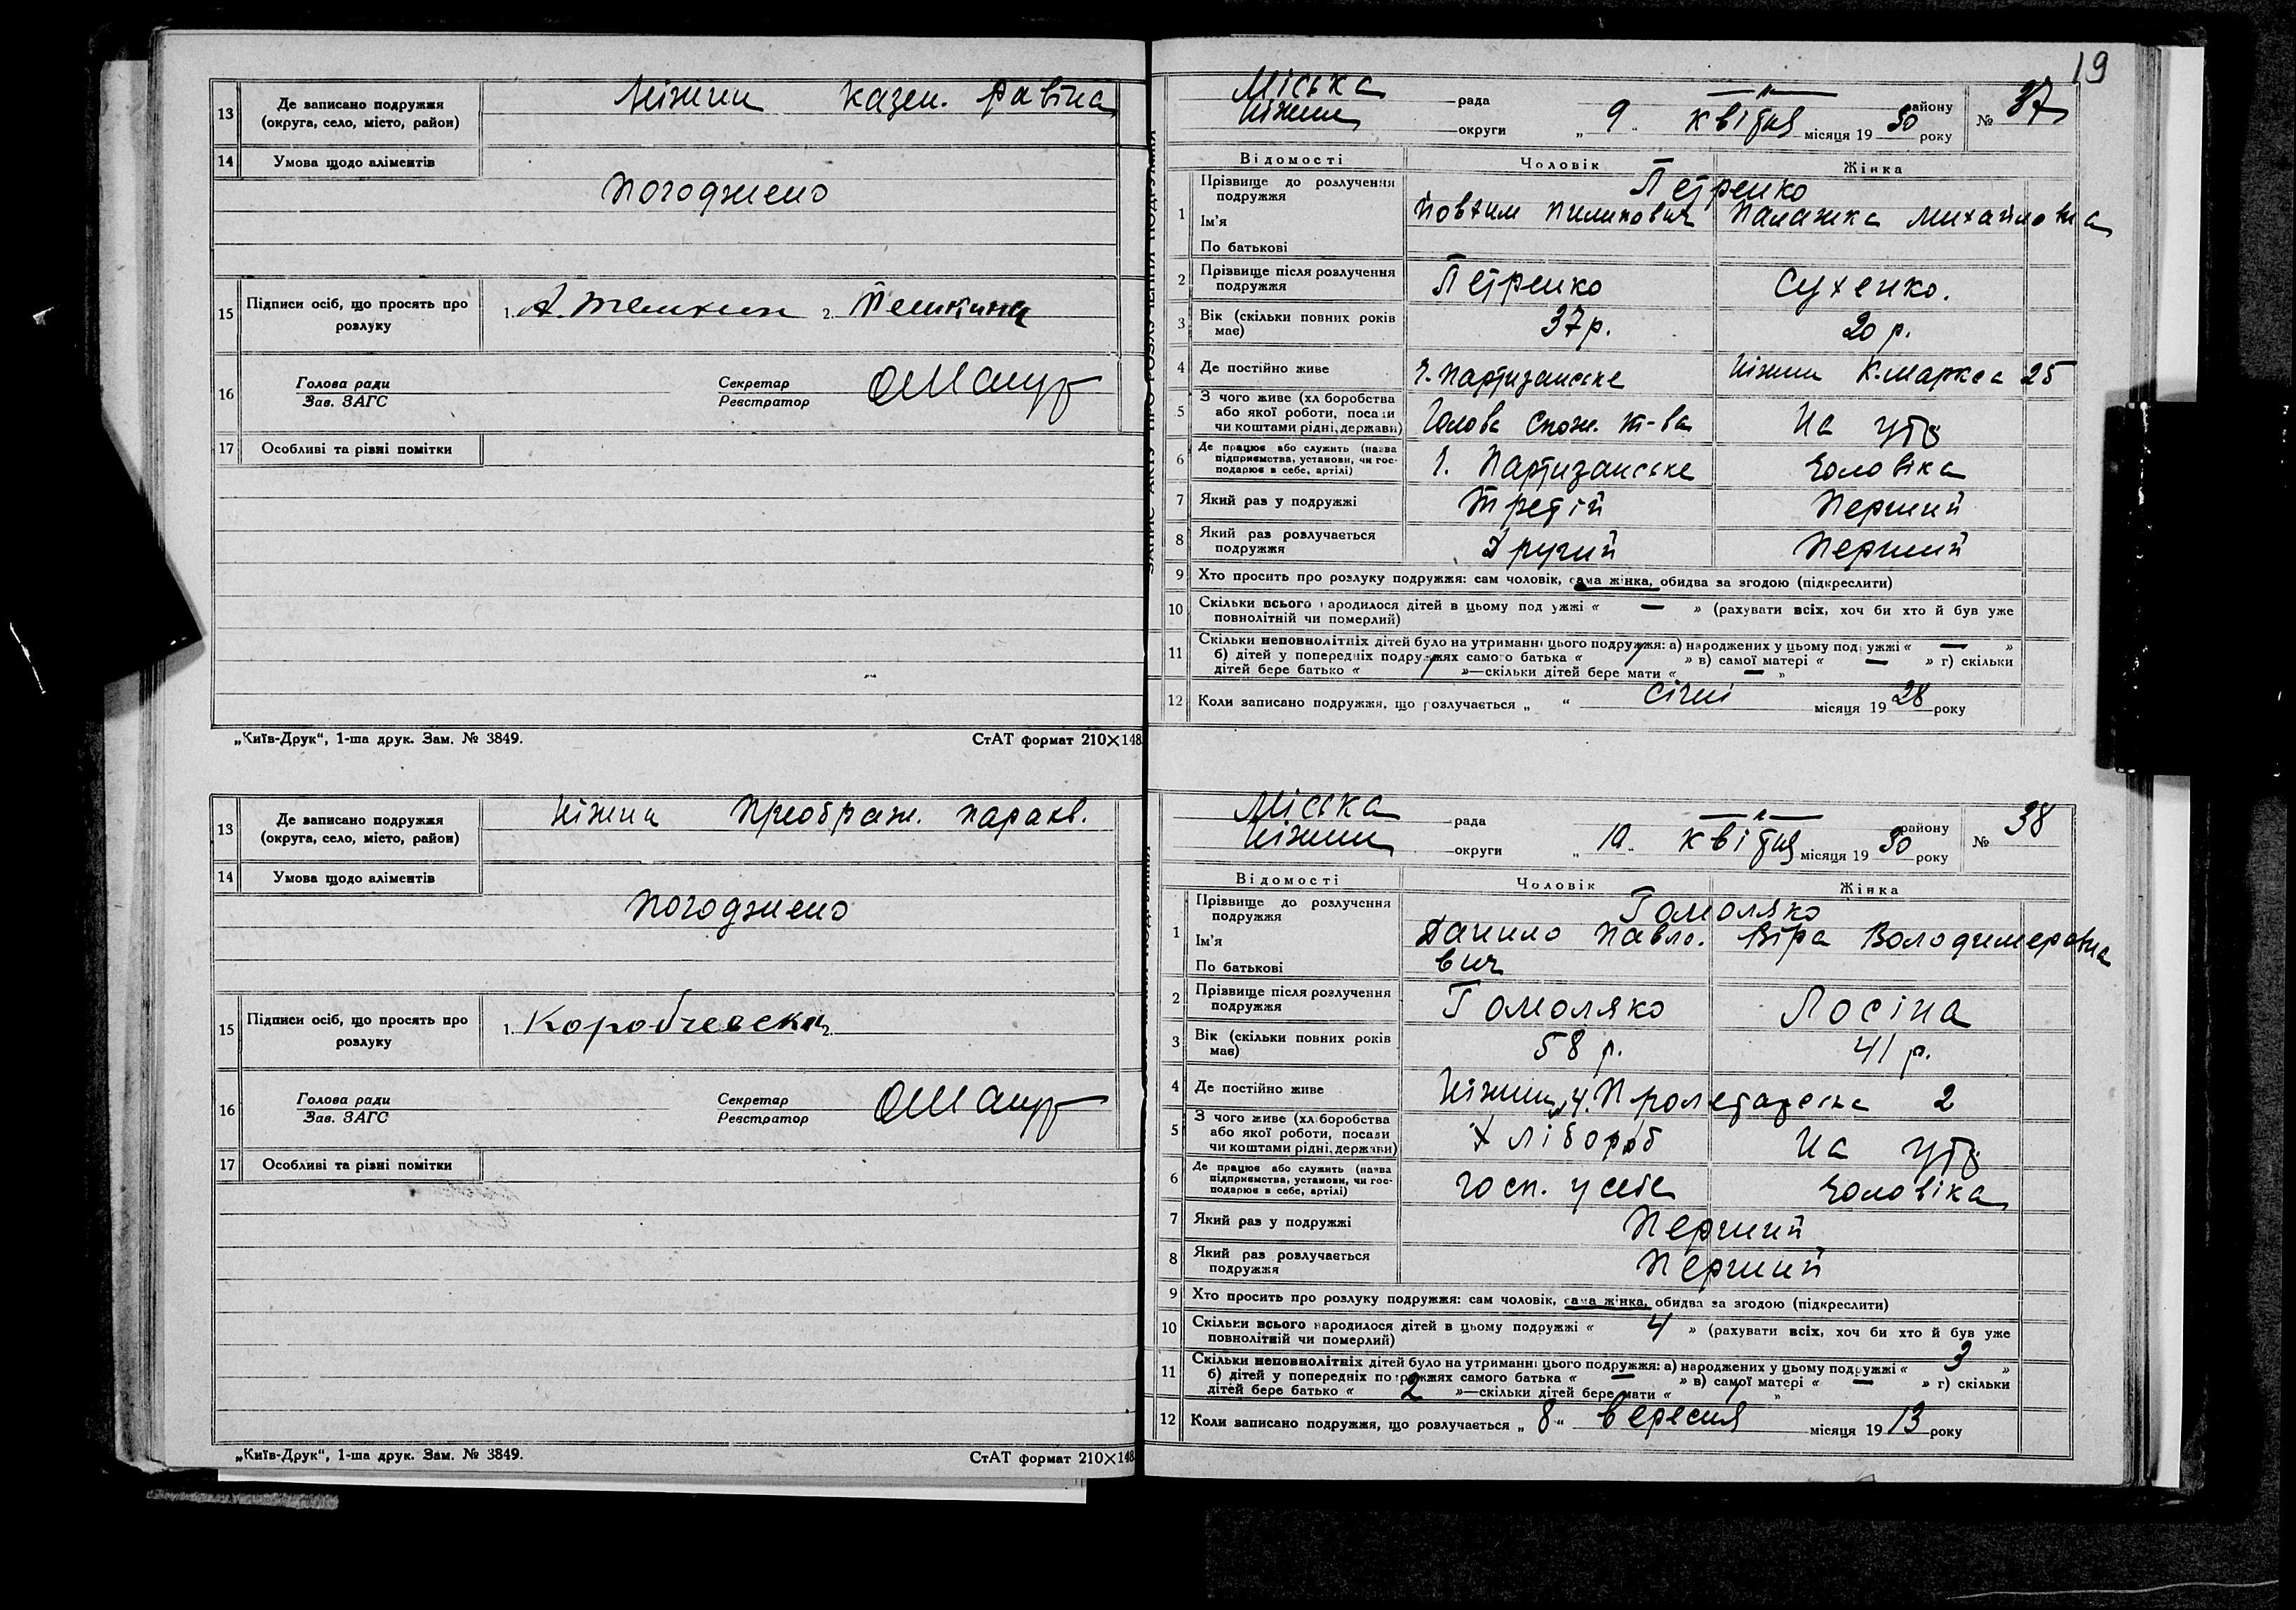 13 Де записано подружжя (округа, село, місто, район) Ніжин казен. равина
14 Умова щодо аліментів
погоджено
15 Підписи осіб, що просять про розлуку 1. А. Темкин 2. Темкина
16 Голова ради Секретар
Зав. ЗАГС Реєстратор
17 Особливі та різні помітки
„Київ-Друк“, 1-ша друк. Зам. № 3849. СтАТ формат 210×148
13 Де записано подружжя (округа, село, місто, район) Ніжин Преображ. парахв.
14 Умова щодо аліментів
погоджено
15 Підписи осіб, що просять про розлуку 1. 2.
16 Голова ради Секретар
Зав. ЗАГС Реєстратор
17 Особливі та різні помітки
„Київ-Друк“, 1-ша друк. Зам. № 3849. СтАТ формат 210×148
19
Міська рада району № 37
Ніжин округи „ 9 „ квітня місяця 19 30 року
Відомості Чоловік Жінка
1 Прізвище до розлучення подружжя Петренко
Ім'я Йовхим Пилипович Палажка Михайловна
По батькові
2 Прізвище після розлучення подружжя Петренко Сухенко.
3 Вік (скільки повних років має) 37 р. 20 р.
4 Де постійно живе х. Партизанське Ніжин К.Маркса 25
5 З чого живе (хліборобства або якої роботи, посади чи коштами рідні, держави) Голова Спож. т-ва На утр
6 Де працює або служить (назва підприємства, установи, чи господарює в себе, артілі) х. Партизанське чоловіка
7 Який раз у подружжі Третій Перший
8 Який раз розлучається подружжя Другий Перший
9 Хто просить про розлуку подружжя: сам чоловік, сама жінка, обидва за згодою (підкреслити)
10 Скільки всього народилося дітей в цьому подружжі « — » (рахувати всіх, хоч би хто й був уже
повнолітній чи померлий)
11 Скільки неповнолітніх дітей було на утриманні цього подружжя: а) народжених у цьому подружжі « — »
б) дітей у попередніх подружжях самого батька « 1 » в) самої матері « — » г) скільки
дітей бере батько « 1 »—скільки дітей бере мати « — »
12 Коли записано подружжя, що розлучається „ “ січні місяця 19 28 року
Міська рада району № 38
Ніжин округи „ 10 „ квітня місяця 19 30 року
Відомості Чоловік Жінка
1 Прізвище до розлучення подружжя Гомоляко
Ім'я Данило Павло. Віра Володимеровна
По батькові вич
2 Прізвище після розлучення подружжя Гомоляко Лосіна
3 Вік (скільки повних років має) 58 р. 41 р.
4 Де постійно живе Ніжин, Ч. Пролетарська 2
5 З чого живе (хліборобства або якої роботи, посади чи коштами рідні, держави) Хлібороб На утр
6 Де працює або служить (назва підприємства, установи, чи господарює в себе, артілі) госп. у себе чоловіка
7 Який раз у подружжі Перший
8 Який раз розлучається подружжя Перший
9 Хто просить про розлуку подружжя: сам чоловік, сама жінка, обидва за згодою (підкреслити)
10 Скільки всього народилося дітей в цьому подружжі « 4 » (рахувати всіх, хоч би хто й був уже
повнолітній чи померлий)
11 Скільки неповнолітніх дітей було на утриманні цього подружжя: а) народжених у цьому подружжі « 3 »
б) дітей у попередніх подружжях самого батька « — » в) самої матері « — » г) скільки
дітей бере батько « 2 »—скільки дітей бере мати « 1 »
12 Коли записано подружжя, що розлучається „ 8 “ вересня місяця 19 13 року